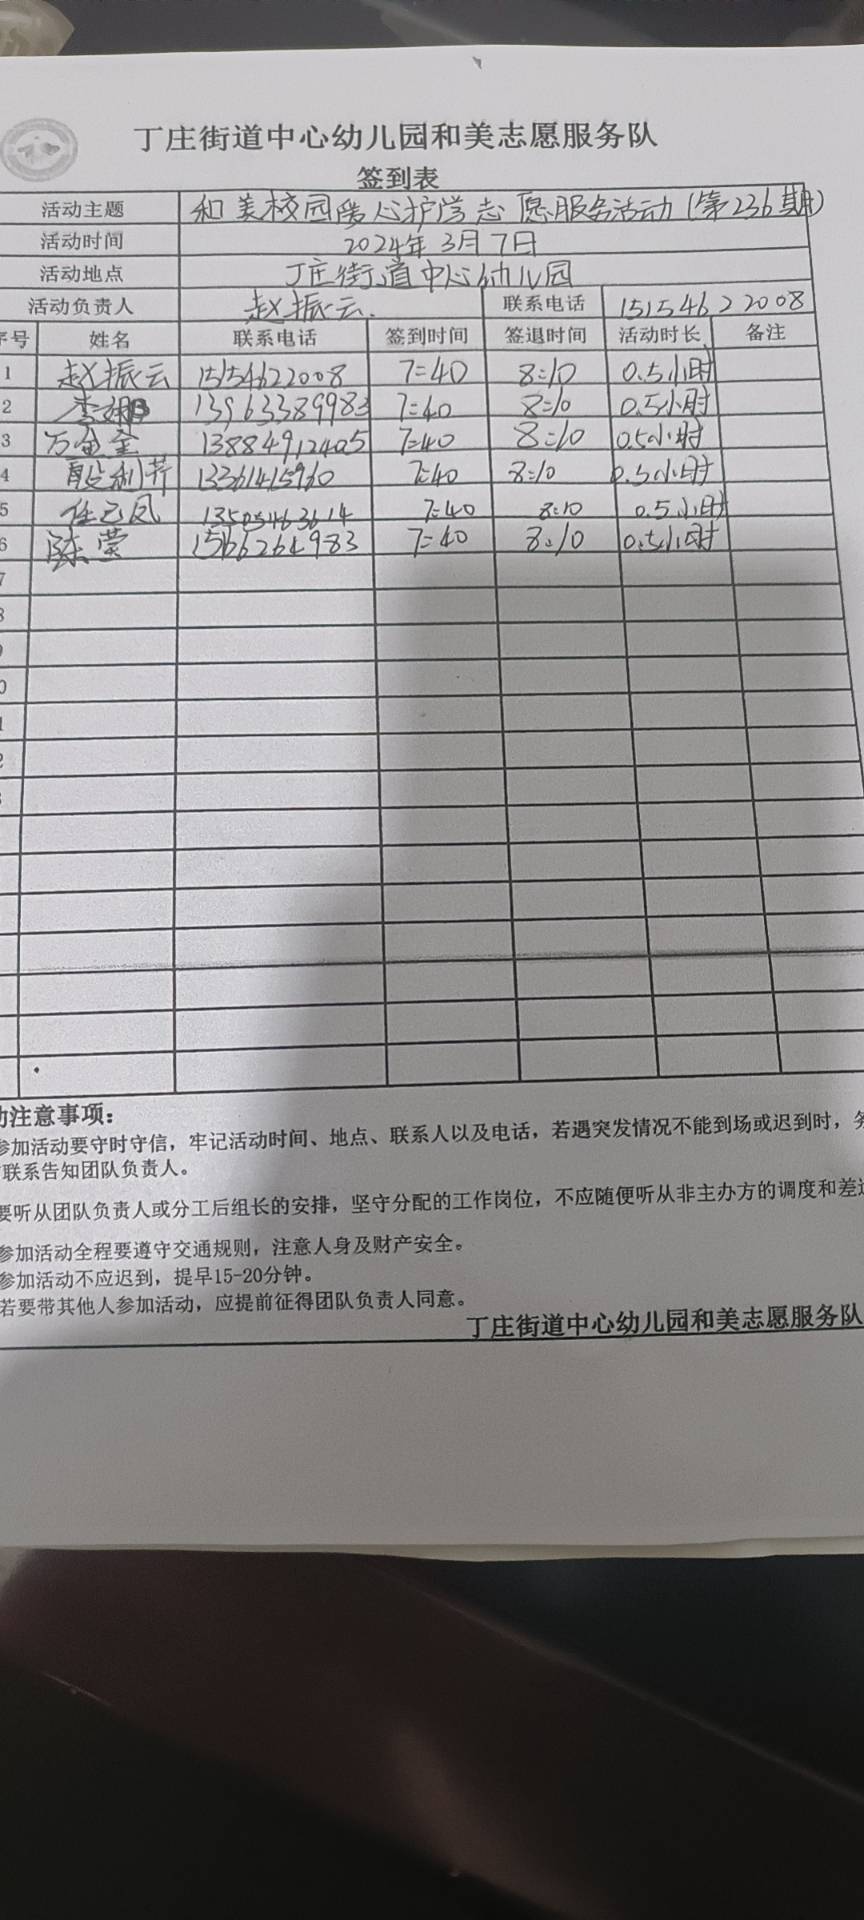 丁庄街道中心幼儿园和美志愿服务队
签到表
活动主题 和美校园暖心护学志愿服务活动(第236期)
活动时间 2024年3月7日
活动地点 丁庄街道中心幼儿园
活动负责人 赵振云. 联系电话 15154622008
序号 姓名 联系电话 签到时间 签退时间 活动时长 备注
1 赵振云 15154622008 7:40 8:10 0.5小时
2 李 13963389983 7:40 8:10 0.5小时
3 万金 13884912405 7:40 8:10 0.5小时
4 殷利芹 13361415960 7:40 8:10 0.5小时
5 任凤 13505463614 7:40 8:10 0.5小时
6 陈莹 15666264983 7:40 8:10 0.5小时
7
8
动注意事项：
参加活动要守时守信，牢记活动时间、地点、联系人以及电话，若遇突发情况不能到场或迟到时，务
联系告知团队负责人。
要听从团队负责人或分工后组长的安排，坚守分配的工作岗位，不应随便听从非主办方的调度和差
参加活动全程要遵守交通规则，注意人身及财产安全。
参加活动不应迟到，提早15-20分钟。
若要带其他人参加活动，应提前征得团队负责人同意。
丁庄街道中心幼儿园和美志愿服务队